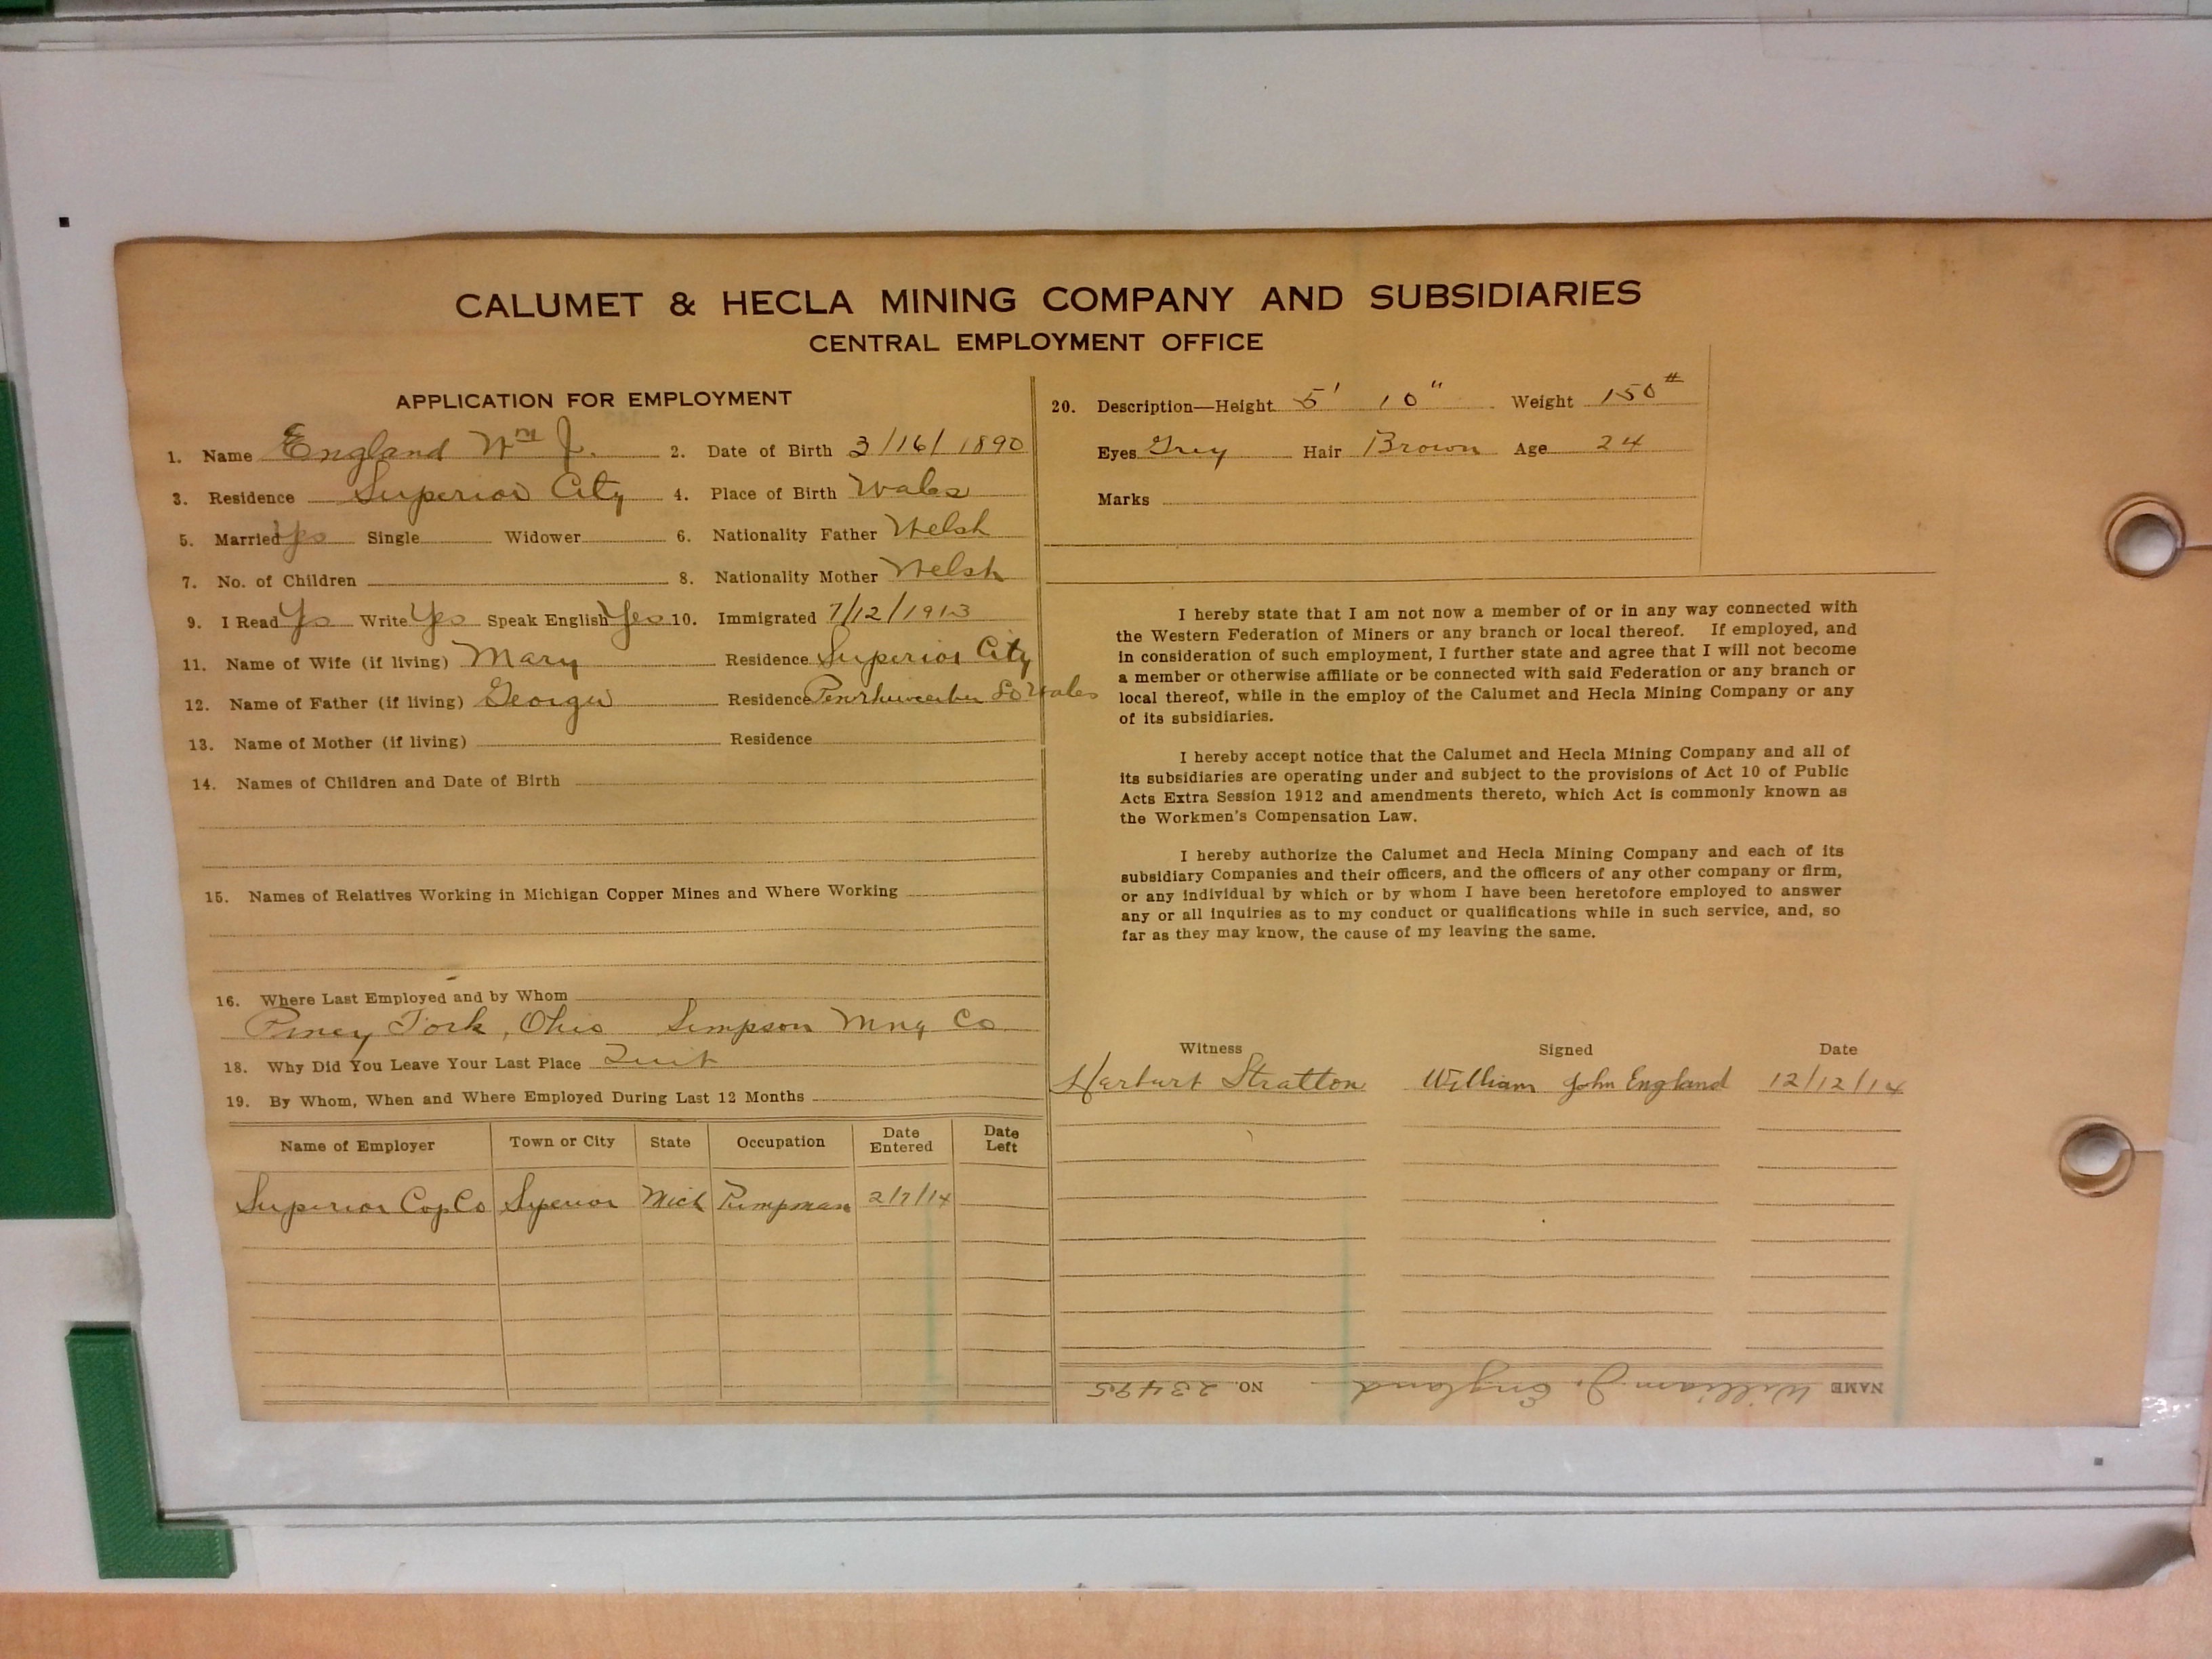 CALUMET & HECLA MINING COMPANY AND SUBSIDIARIES
CENTRAL EMPLOYMENT OFFICE
APPLICATION FOR EMPLOYMENT
1. Name England Wm J. 2. Date of Birth 3/16/1890
3. Residence Superior City 4. Place of Birth Wales
5. Married Yes Single Widower 6. Nationality Father Welsh
7. No. of Children 8. Nationality Mother Welsh
9. I Read Yes Write Yes Speak English Yes 10. Immigrated 7/12/1913
11. Name of Wife (if living) Mary Residence Superior City
12. Name of Father (if living) George Residence So Wales
13. Name of Mother (if living) Residence
14. Names of Children and Date of Birth
15. Names of Relatives Working in Michigan Copper Mines and Where Working
16. Where Last Employed and by Whom
Piney Fork, Ohio Simpson Mng Co
18. Why Did You Leave Your Last Place Quit
19. By Whom, When and Where Employed During Last 12 Months
Name of Employer Town or City State Occupation Date Entered Date Left
Superior Cop Co Superior Mich Pumpman 2/7/14
20. Description—Height 5' 10" Weight 150#
Eyes Grey Hair Brown Age 24
Marks
I hereby state that I am not now a member of or in any way connected with
the Western Federation of Miners or any branch or local thereof. If employed, and
in consideration of such employment, I further state and agree that I will not become
a member or otherwise affiliate or be connected with said Federation or any branch or
local thereof, while in the employ of the Calumet and Hecla Mining Company or any
of its subsidiaries.
I hereby accept notice that the Calumet and Hecla Mining Company and all of
its subsidiaries are operating under and subject to the provisions of Act 10 of Public
Acts Extra Session 1912 and amendments thereto, which Act is commonly known as
the Workmen's Compensation Law.
I hereby authorize the Calumet and Hecla Mining Company and each of its
subsidiary Companies and their officers, and the officers of any other company or firm,
or any individual by which or by whom I have been heretofore employed to answer
any or all inquiries as to my conduct or qualifications while in such service, and, so
far as they may know, the cause of my leaving the same.
Witness Signed Date
Herburt Stratton William John England 12/12/14
NAME William J. England NO. 23495